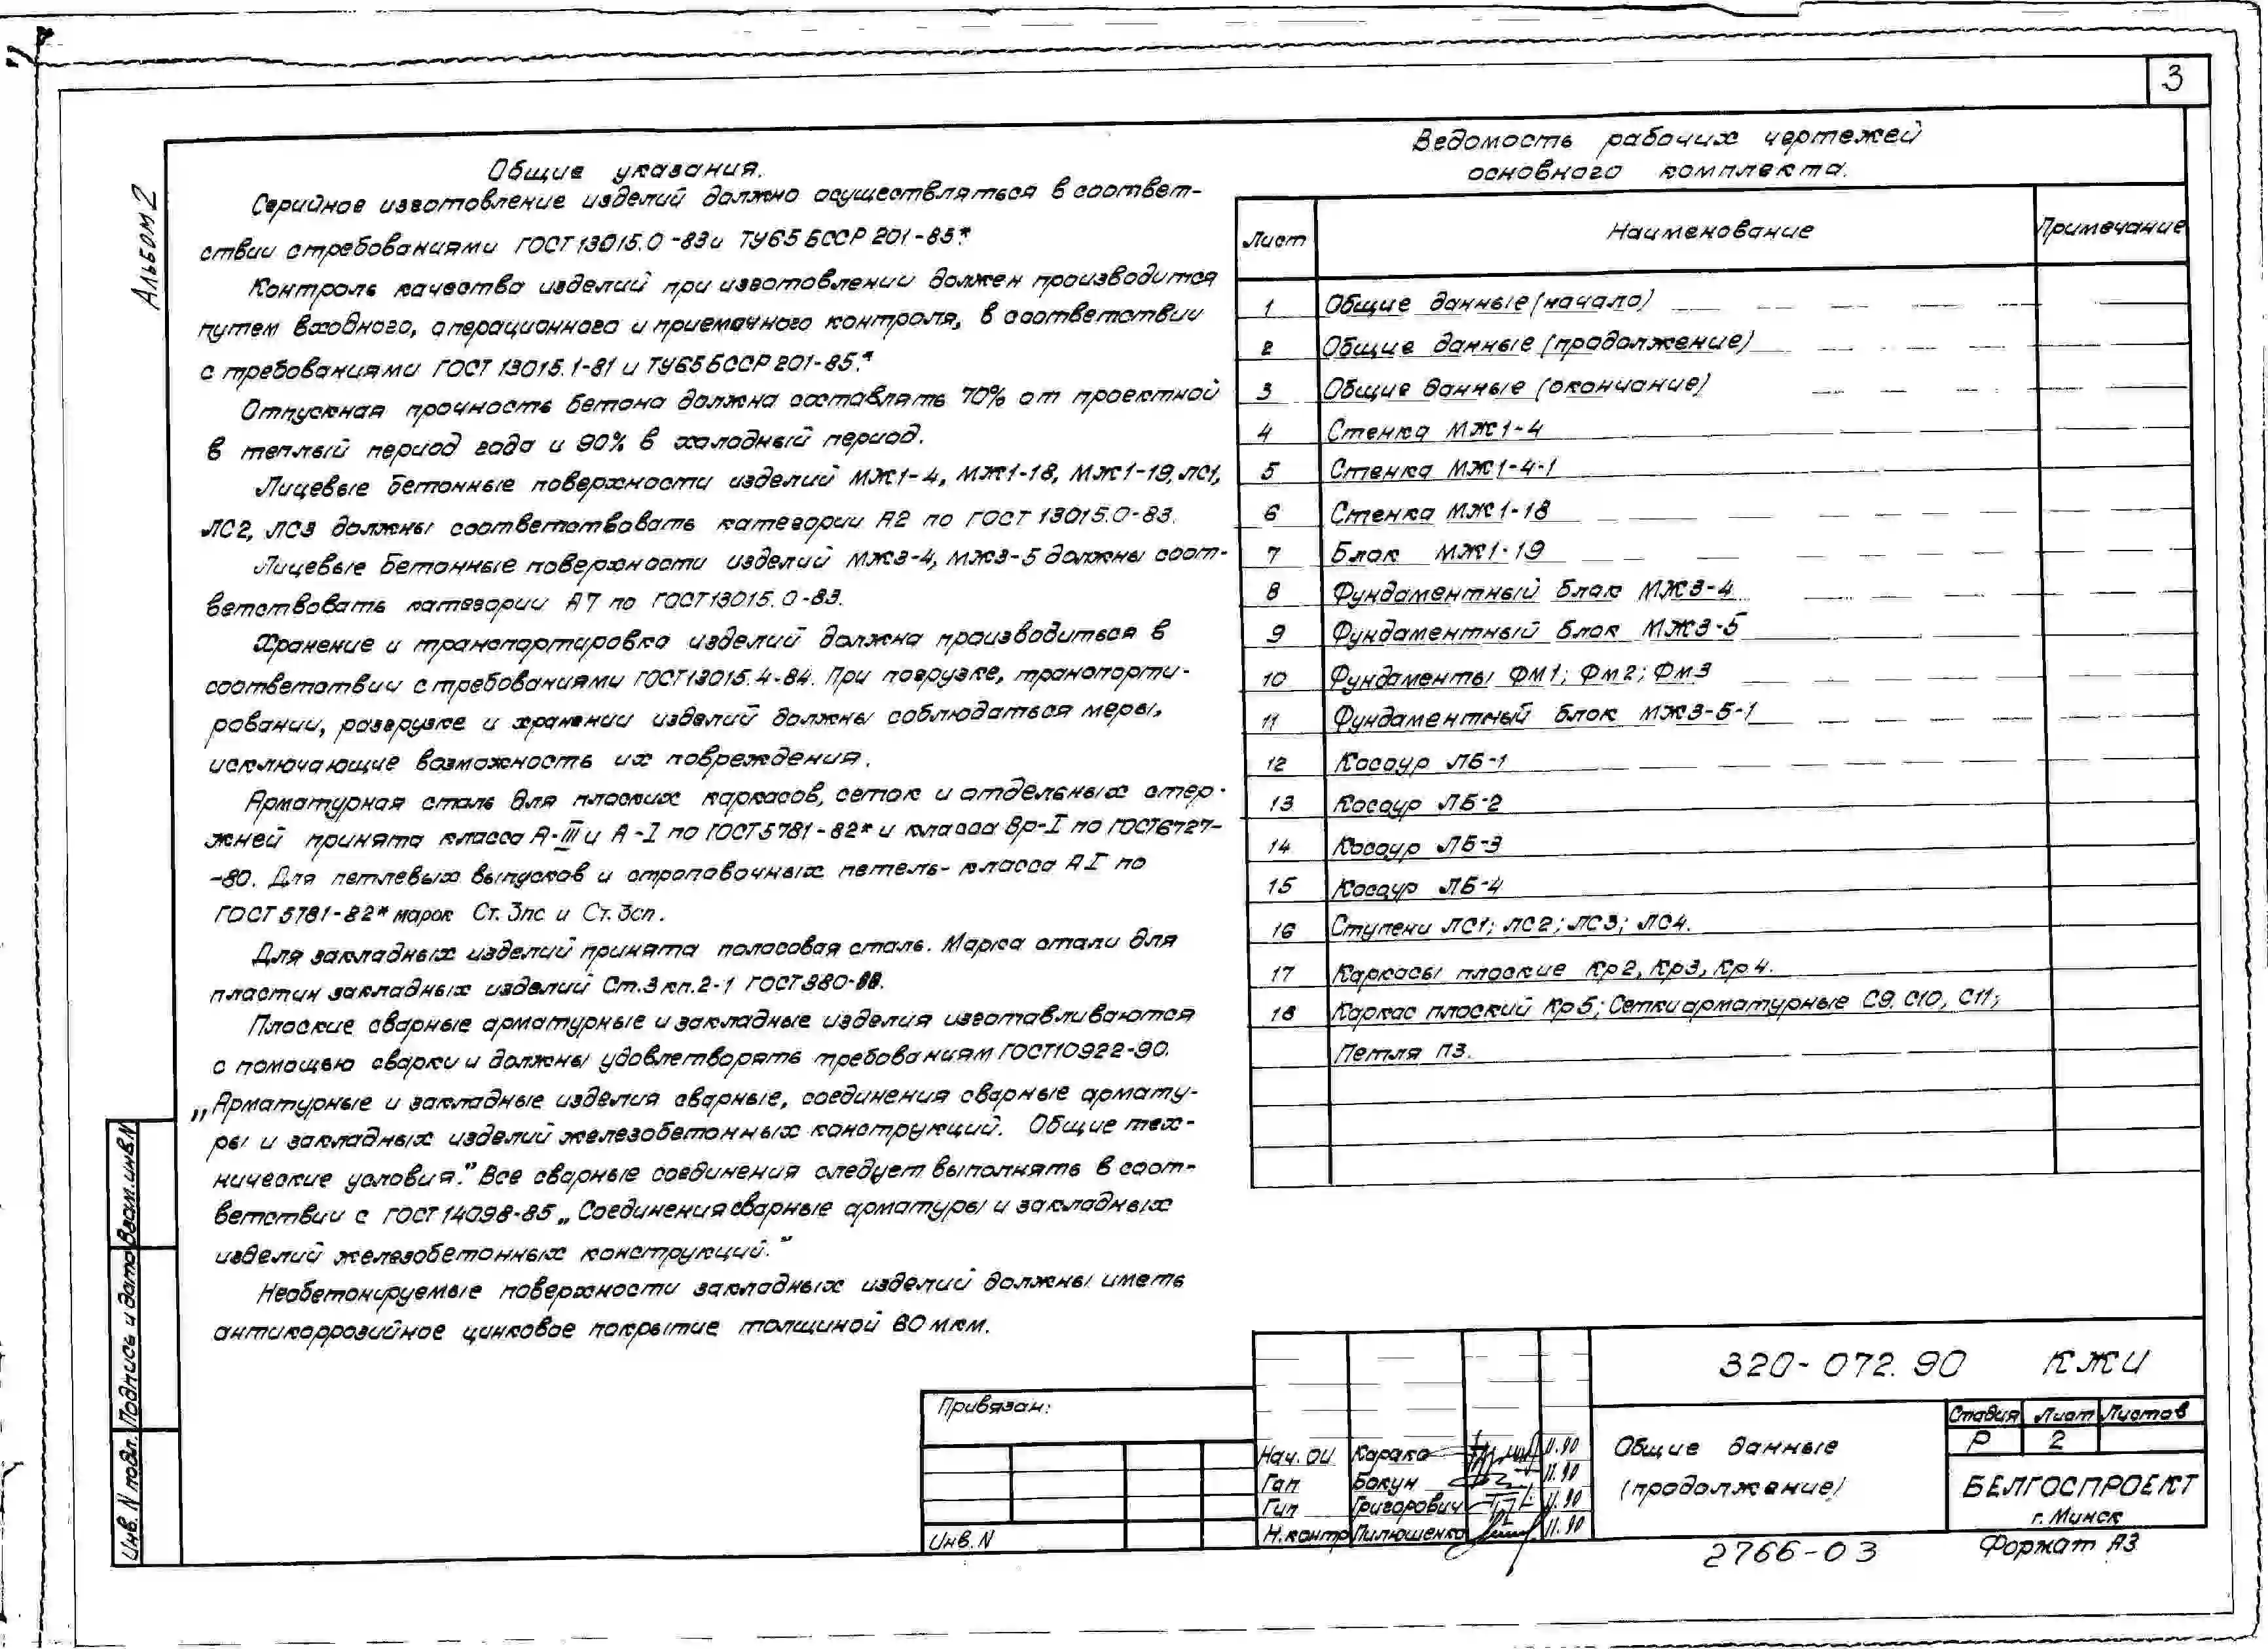 3
Альбом 2
Общие указания.
Серийное изготовление изделий должно осуществляться в соответ-
ствии с требованиями ГОСТ 13015.0-83 и ТУ65 БССР 201-85*
Контроль качества изделий при изготовлении должен производится
путем входного, операционного и приемочного контроля, в соответствии
с требованиями ГОСТ 13015.1-81 и ТУ65 БССР 201-85*
Отпускная прочность бетона должна составлять 70% от проектной
в теплый период года и 90% в холодный период.
Лицевые бетонные поверхности изделий МЖ1-4, МЖ1-18, МЖ1-19, ЛС1,
ЛС2, ЛС3 должны соответствовать категории А2 по ГОСТ 13015.0-83.
Лицевые бетонные поверхности изделий МЖ3-4, МЖ3-5 должны соот-
ветствовать категории А7 по ГОСТ 13015.0-83.
Хранение и транспортировка изделий должна производиться в
соответствии с требованиями ГОСТ 13015.4-84. При погрузке, транспорти-
ровании, разгрузке и хранении изделий должны соблюдаться меры,
исключающие возможность их повреждения.
Арматурная сталь для плоских каркасов, сеток и отдельных стер-
жней принята класса А-III и А-I по ГОСТ 5781-82* и класса Вр-I по ГОСТ 6727-
-80. Для петлевых выпусков и строповочных петель- класса А I по
ГОСТ 5781-82* марок Ст.3пс и Ст.3сп.
Для закладных изделий принята полосовая сталь. Марка стали для
пластин закладных изделий Ст.3 кп.2-1 ГОСТ 380-88.
Плоские сварные арматурные и закладные изделия изготавливаются
с помощью сварки и должны удовлетворять требованиям ГОСТ 10922-90.
„Арматурные и закладные изделия сварные, соединения сварные армату-
ры и закладных изделий железобетонных конструкций. Общие тех-
нические условия.” Все сварные соединения следует выполнять в соот-
ветствии с ГОСТ 14098-85 „Соединения сварные арматуры и закладных
изделий железобетонных конструкций.”
Необетонируемые поверхности закладных изделий должны иметь
антикоррозийное цинковое покрытие толщиной 80 мкм.
Ведомость рабочих чертежей
основного комплекта.
Лист Наименование Примечание
1 Общие данные (начало)
2 Общие данные (продолжение)
3 Общие данные (окончание)
4 Стенка МЖ1-4
5 Стенка МЖ1-4-1
6 Стенка МЖ1-18
7 Блок МЖ1-19
8 Фундаментный блок МЖ3-4
9 Фундаментный блок МЖ3-5
10 Фундаменты ФМ1; Фм2; Фм3
11 Фундаментный блок МЖ3-5-1
12 Косоур ЛБ-1
13 Косоур ЛБ-2
14 Косоур ЛБ-3
15 Косоур ЛБ-4
16 Ступени ЛС1; ЛС2; ЛС3; ЛС4.
17 Каркасы плоские Кр2, Кр3, Кр4.
18 Каркас плоский Кр5; Сетки арматурные С9, С10, С11;
Петля П3.
Взам.инв.N
Подпись и дата
Инв. N подл.
Привязан:
Инв. N
Нач. ОИ Карако 11.90
Гап Бокун 11.90
Гип Григорович 11.90
Н.контр Пилюшенко 11.90
320-072.90 КЖИ
Общие данные
(продолжение)
Стадия Лист Листов
Р 2
БЕЛГОСПРОЕКТ
г. Минск
2766-03
Формат А3